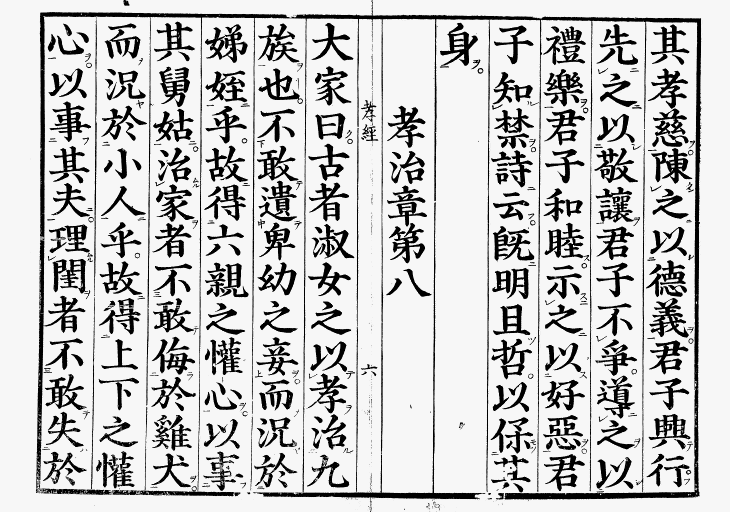 其孝慈陳之以德義君子興行
先之以敬讓君子不爭導之以
禮樂君子和睦示之以好惡君
子知禁詩云既明且哲以保其
身
孝治章第八
孝經
六
大家曰古者淑女之以孝治九
族也不敢遺卑幼之妾而況於
娣姪乎故得六親之懽心以事
其舅姑治家者不敢侮於雞犬
而況於小人乎故得上下之懽
心以事其夫理閨者不敢失於